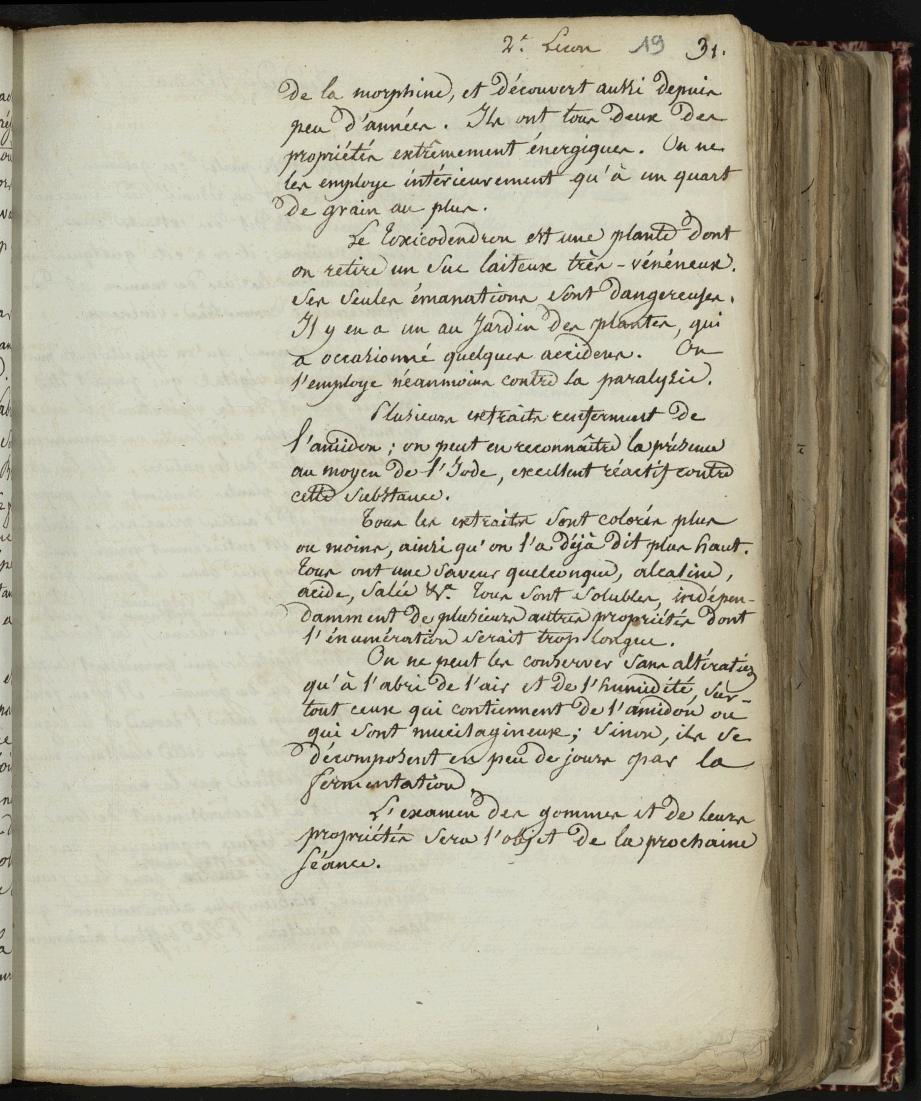 2.e Leçon 19 31.
de la morphine, et découvert aussi depuis
peu d'années. Ils ont tous deux des
propriétés extrêmement énergiques. On ne
les employe intérieurement qu'à un quart
de grain au plus.
Le Toxicodendron est une plante dont
on retire un suc laiteux très-vénéneux.
Ses seules émanations sont dangereuses.
Il y en a un au Jardin des plantes, qui
a occasionné quelques accidens. On
l'employe néanmoins contre la paralysie.
Plusieurs extraits renferment de
l'amidon; on peut en reconnaître la présence
au moyen de l'Iode, excellent réactif contre
cette substance.
Tous les extraits sont colorés plus
ou moins, ainsi qu'on l'a déjà dit plus haut.
Tous ont une saveur quelconque, alcaline,
acide, salée &a. Tous sont solubles, indépen-
damment de plusieurs autres propriétés dont
l'énumération serait trop longue.
On ne peut les conserver sans altération
qu'à l'abri de l'air et de l'humidité, sur-
tout ceux qui contiennent de l'amidon ou
qui sont mucilagineux; sinon, ils se
décomposent en peu de jours par la
fermentation.
L'examen des gommes et de leurs
propriétés sera l'objet de la prochaine
séance.